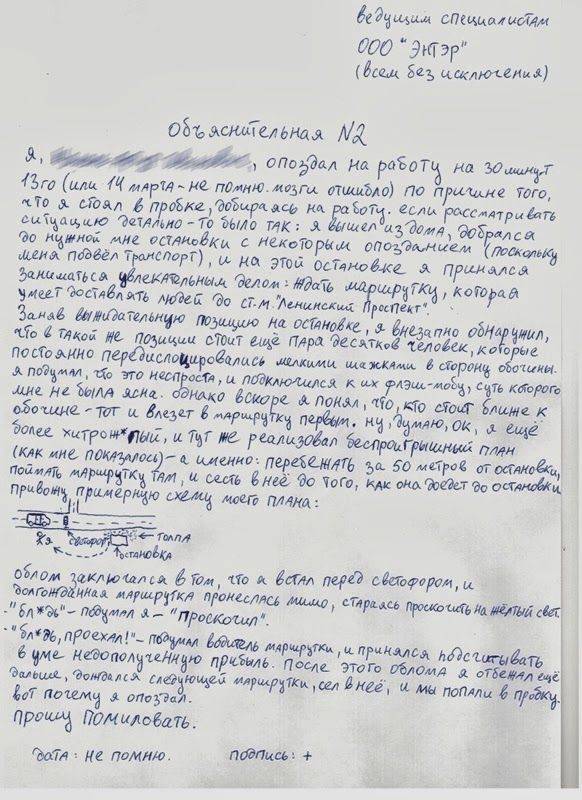 ведущим специалистам
ООО "Энтэр"
(всем без исключения)
Объяснительная №2
Я, , опоздал на работу на 30 минут
13го (или 14 марта - не помню. мозги отшибло) по причине того,
что я стоял в пробке, добираясь на работу. если рассматривать
ситуацию детально - то было так: я вышел из дома, добрался
до нужной мне остановки с некоторым опозданием (поскольку
меня подвёл транспорт), и на этой остановке я принялся
заниматься увлекательным делом: ждать маршрутку, которая
умеет доставлять людей до ст.м. "Ленинский Проспект".
Заняв выжидательную позицию на остановке, я внезапно обнаружил,
что в такой же позиции стоит ещё пара десятков человек, которые
постоянно передислоцировались мелкими шажками в сторону обочины.
я подумал, что это неспроста, и подключился к их флэш-мобу, суть которого
мне не была ясна. однако вскоре я понял, что, кто стоит ближе к
обочине - тот и влезет в маршрутку первым. ну, думаю, ок, я ещё
более хитрож*пый, и тут же реализовал беспроигрышный план
(как мне показалось) - а именно: перебежать за 50 метров от остановки,
поймать маршрутку там, и сесть в неё до того, как она доедет до остановки
привожу примерную схему моего плана:
я
светофор
толпа
остановка
облом заключался в том, что я встал перед светофором, и
долгожданная маршрутка пронеслась мимо, стараясь проскочить на жёлтый свет.
- "бл*дь" - подумал я - "проскочил".
- "бл*дь, проехал!" - подумал водитель маршрутки, и принялся подсчитывать
в уме недополученную прибыль. После этого облома я отбежал ещё
дальше, дождался следующей маршрутки, сел в неё, и мы попали в пробку.
вот почему я опоздал.
прошу помиловать.
дата: не помню. подпись: +